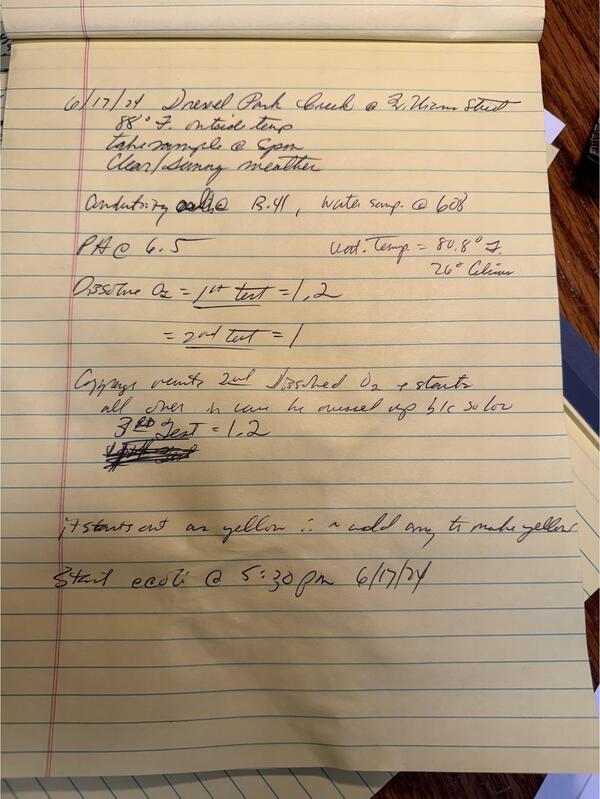 6/17/24 Drexel Park Creek @ Williams Street
88° F. outside temp
take sample @ 5pm
Clear/Sunny weather
Conductivity @ 13.41, water samp. @ 608
PH @ 6.5 Wat. Temp. = 80.8° F.
26° Celcius
Dissolve O2 = 1st test = 1.2
= 2nd test = 1
wants 2nd dissolved O2 + starts
all over in case he messed up b/c so low
3RD Test = 1.2
it starts out as yellow ∴ n add any to make yellow
Start ecoli @ 5:30 pm 6/17/24